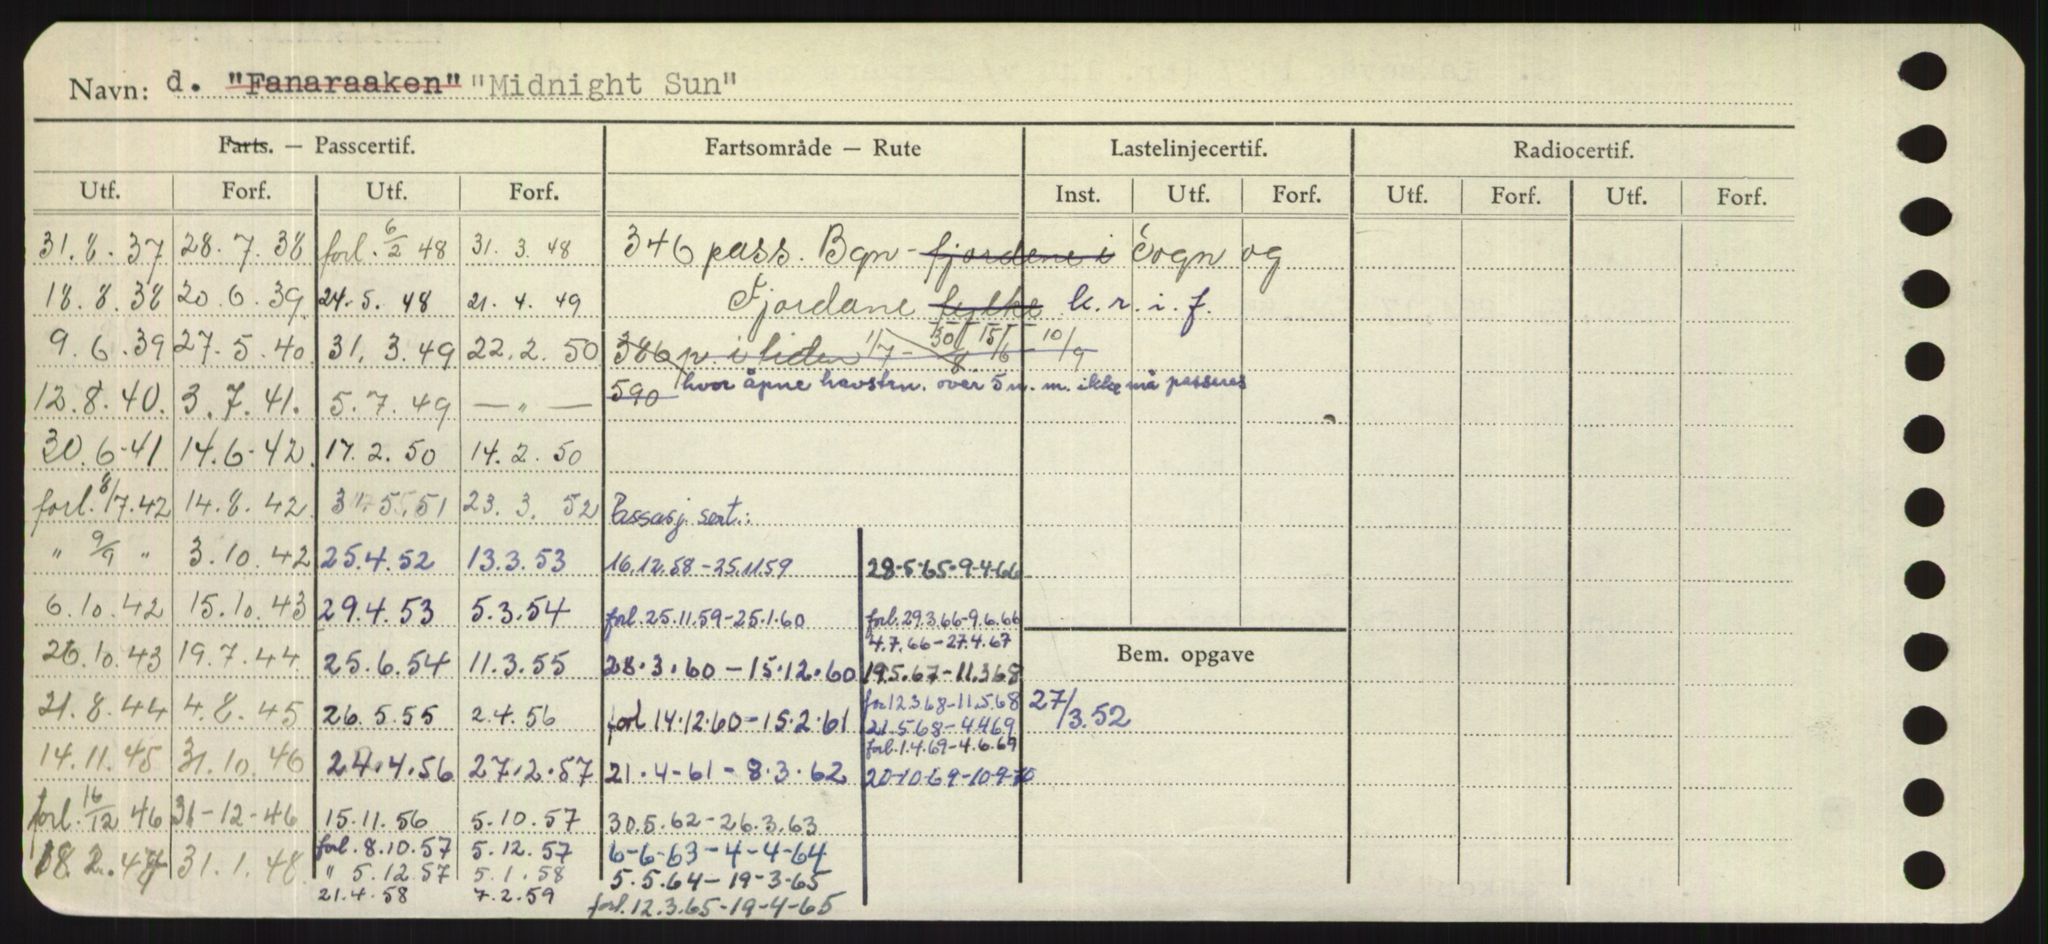 Navn: d. "Fanaraaken" "Midnight Sun"
Farts. — Passcertif. Fartsområde — Rute Lastelinjecertif. Radiocertif.
Utf. Forf. Utf. Forf. Inst. Utf. Forf. Utf. Forf. Utf. Forf.
31.8.37 28.7.38 forl. 6/2 48 31.3.48 346 pass. Bgn - fjordene i Sogn og
18.8.38 20.6.39 24.5.48 21.4.49 Fjordane fylke k.r.i.f.
9.6.39 27.5.40 31.3.49 22.2.50 386 p. i tiden 1/7 - 30/8 15/6 - 10/9
12.8.40. 3.7.41. 5.7.49 — " — 590 hvor åpne havstrn. over 5 n.m. ikke må passeres
30.6-41 14.6-42 17.2.50 14.2.50
forl. 8/7.42 14.8.42 5.51 23.3.52 Passasj. sert.:
" 9/9 " 3.10.42 25.4.52 13.3.53 16.12.58-25.11.59 28-5-65-9-4-66
6.10.42 15.10.43 29.4.53 5.3.54 forl. 25.11.59-25.1.60 forl. 29.3.66-9.6.66
4.7.66-27.4.67
26.10.43 19.7.44 25.6.54 11.3.55 28.3.60-15.12.60 19.5.67-11.3.68
Bem. opgave
21.8.44 4.8.45 26.5.55 2.4.56 forl 14.12.60-15.2.61 for 12.3.68-11.5.68 27/3.52
21.5.68-4.4.69
forl. 1.4.69-4.6.69
14.11.45 31.10.46 24.4.56 27.2.57 21.4-61-8.3.62 20-10-69-10-9-70
forl. 16/12 46 31-12-46 15.11.56 5.10.57 30.5.62-26.3.63
forl. 8.10.57 5.12.57 6-6-63-4-4-64
18.2.47 31.1.48 " 5.12.57 5.1.58 5.5.64-19-3-65
21.4.58 7.2.59 forl. 12.3.65-19-4-65